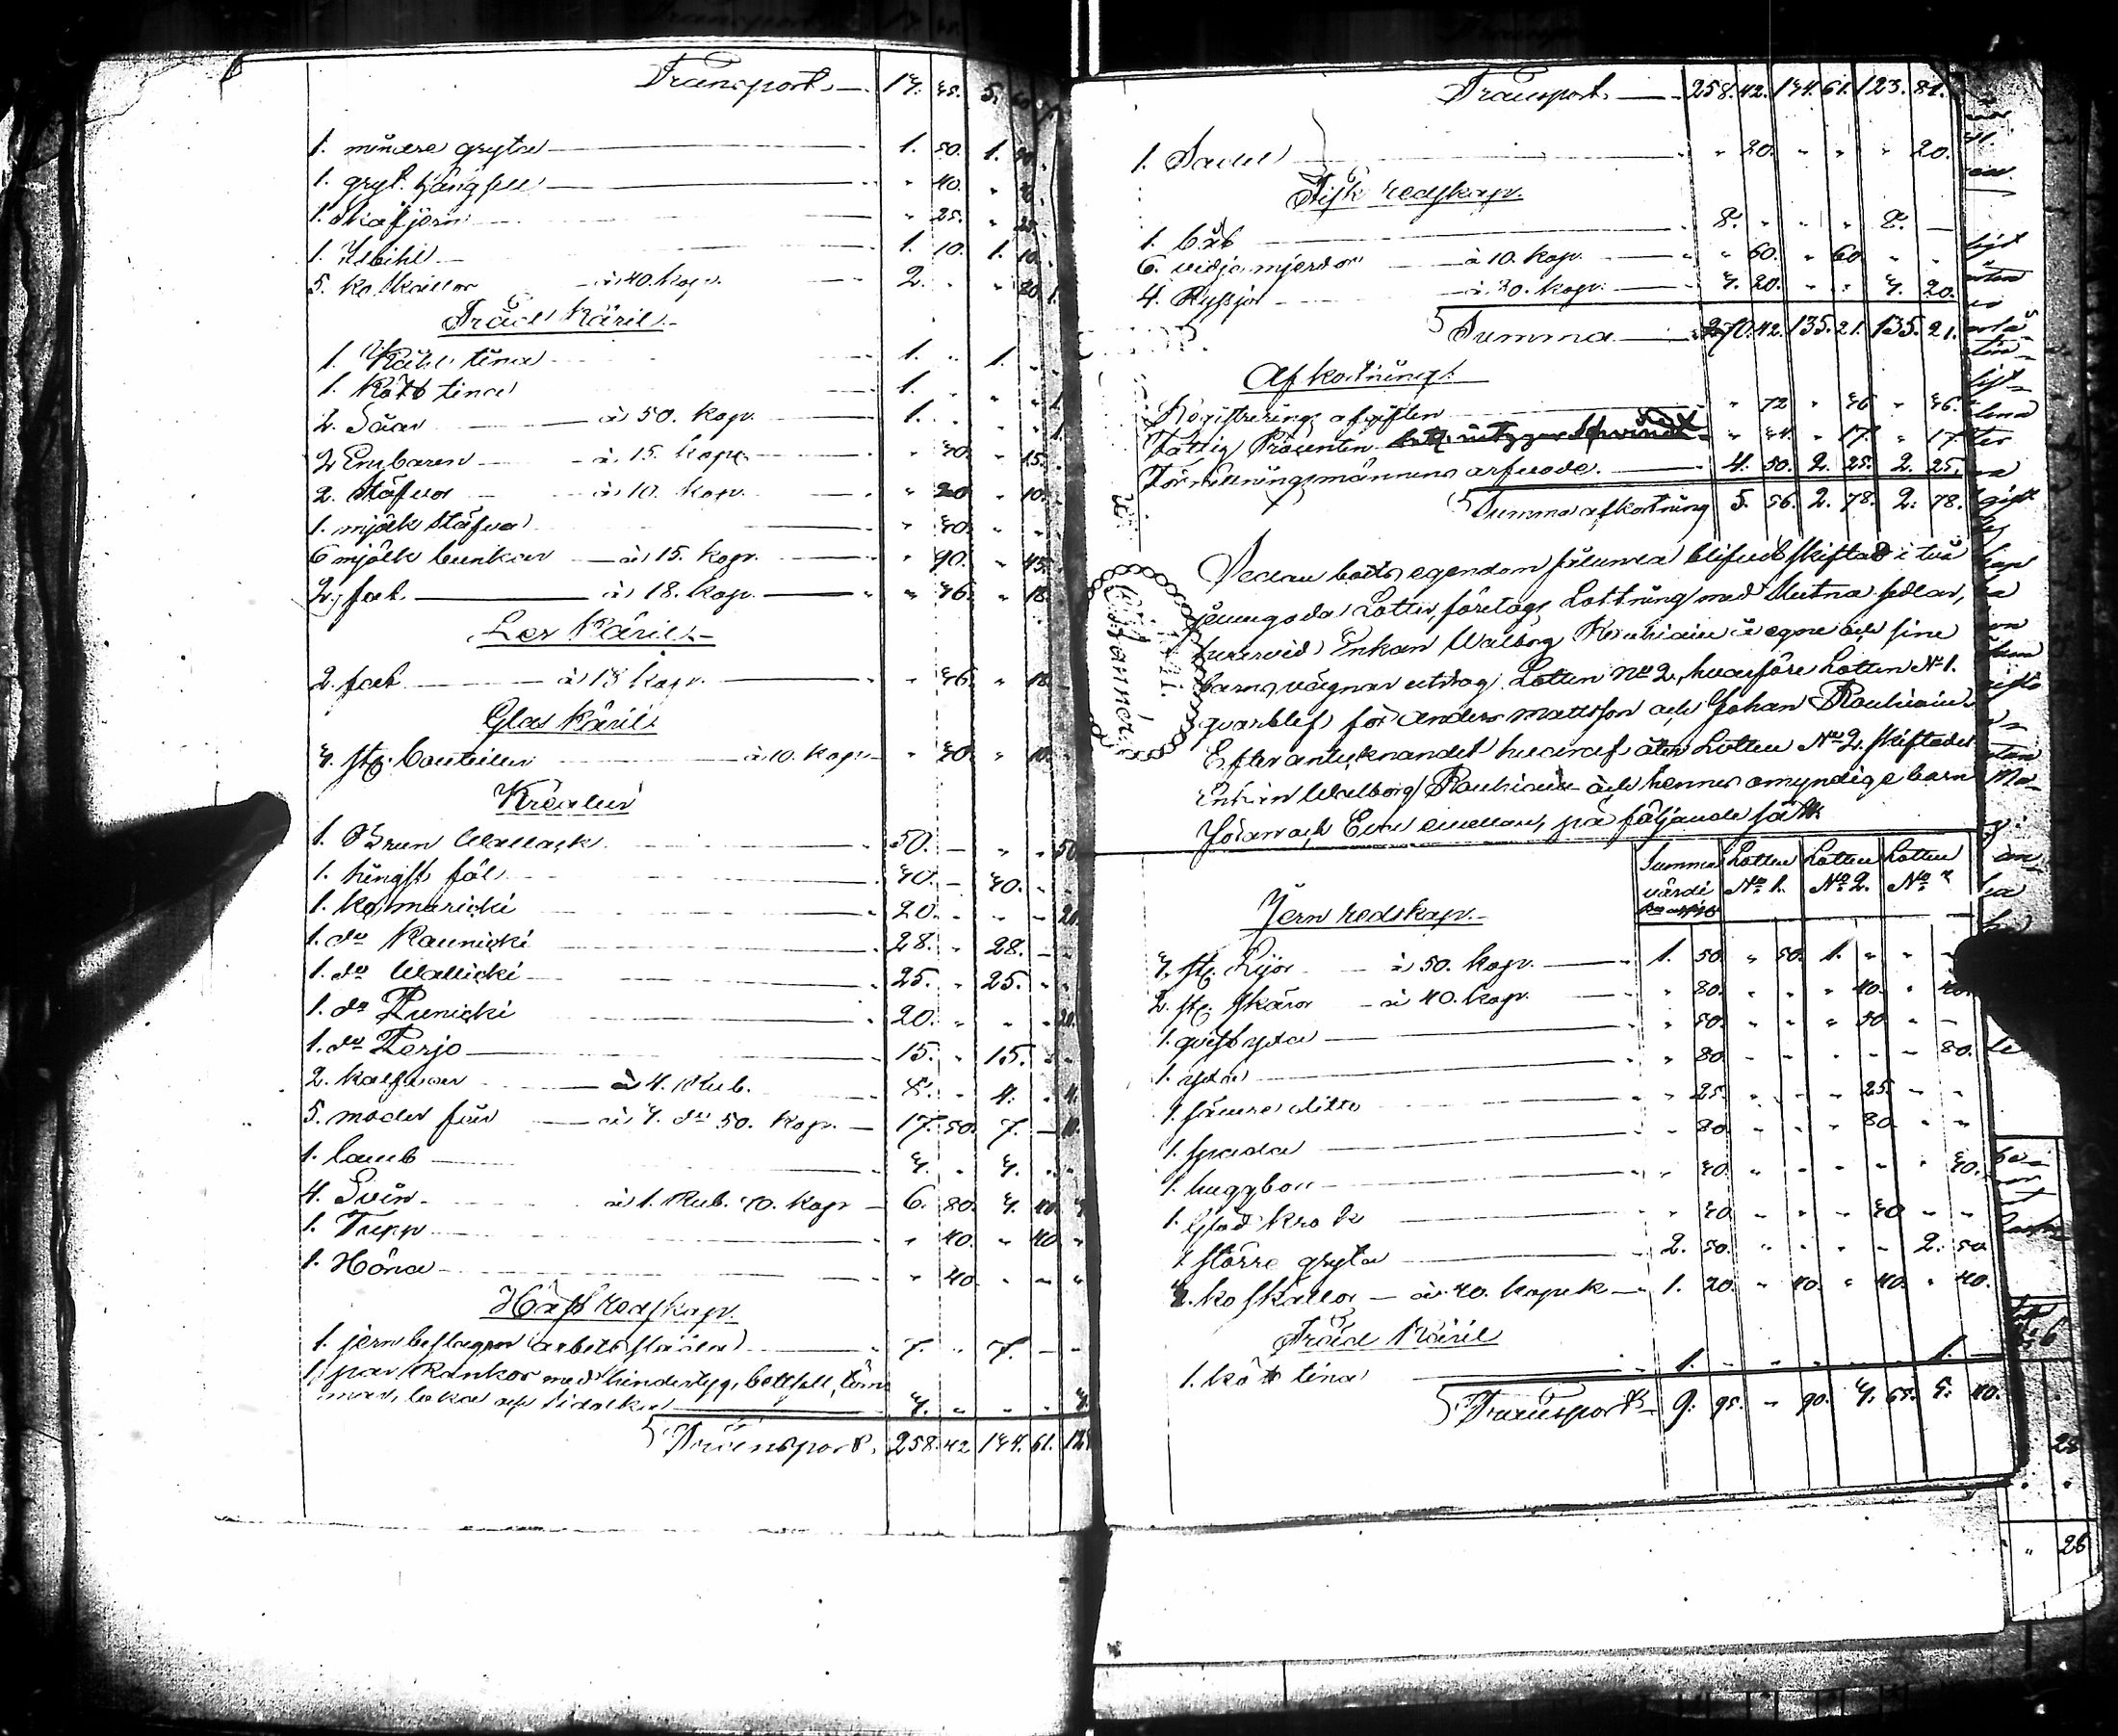 Transport 17. 45. 5.
1. mindre gryta 1. 50. 1. 50.
1. gryt. hängsel " 40. "
1. Skafjern " 25. " 25.
1. Isbihl 1. 10. 1. 10.
5. koskällor à 40. kop. 2. " " 80. 1.
Träd Käril
1. Kähl tina 1. " 1.
1. kött tina 1. " " " 1.
2. Såar à 50. kop. 1. " " " 1.
2 Embaren à 15. kop. " 30. " 15.
2. Stäfvor à 10. kop. " 20 " 10.
1. mjölk stäfva " 30. " "
6 mjölk bunkar à 15. kop. " 90. " 45.
2. fat à 18. kop. " 36. " 18.
Ler Käril
2. fat à 18 kop. " 36. " 18
Glas Käril
3. st. bouteiller à 10. kop. " 30. " 10.
Kreatur
1. Brun Wallack 50. " " 50
1. hingst föl 30. " 30. "
1. ko, maricki 20. " " " 20
1. do Kaunicki 28. " 28. "
1. do Wallicki 25. " 25. "
1. do Punicki 20. " " " 20.
1. do Perjo 15. " 15. "
2. kalfvar à 4. Rub. 8. " 4. " 4.
5. moder får à 3. do 50. kop. 17. 50. 7. " 10.
1. lamb 3. " 3. "
4. Svin à 1. Rub. 70. kop 6. 80. 3. 40. 3
1. Tupp " 40. " 40 "
1. Höna " 40 " " "
Häst redskap.
1. jernbeslagen arbets släda 7. " 7. "
1. par Rankor med hindertyg, bettsell, töm
mar, loka och sidolkar 3. " " " 3.
Transport. 258. 42 134. 61. 123
Transport. 258. 42. 134. 61. 123. 81.
1. Sadel " 20. " " " 20.
Fisk redskap.
1. båt 8. " " " 8. "
6. vidja mjerdor à 10. kop. " 60. " 60 " "
4. Ryssjor à 80. kop. 3. 20. " " 3. 20.
Summa 270. 42. 135. 21. 135. 21.
Afkortning.
Registrerings afgiften " 72 " 36 " 36.
Fattig Procenten " 34. " 17. " 17.
Förrättningsmännens arfvode. 4. 50. 2. 25. 2. 25.
Summa afkortning 5. 56. 2. 78. 2. 78.
Sedan boets egendom sålunda blifvit skiftad i två
jemngoda Lotter, företogs Lottning med slutna sedlar,
hvarvid Enkan Walborg Rouhiain å egne och sine
barns vägnar utdrog Lotten No 2, hvarföre Lotten No 1.
qvarblef för Anders Mattsson och Johan Rouhiain.
Efter antecknandet hvaraf åter Lotten No 2. skiftades
Enkan Walborg Rouhiain och hennes omyndige barn
Jöran och Eva emellan, på följande sätt:
Summa Lotten Lotten Lotten
värdi No 1. No 2. No 3
Jern redskap.
3. st. Lijor à 50. kop. 1. 50 " 50. 1. " " "
2. st. skäror à 40. kop. " 80. " " " 40. " 40.
1. qvist yxa " 50. " " " 50 " "
1. yxa " 80 " " " " " 80.
1. sämre ditto " 25. " " " 25. " "
1. spada " 80. " " " 80. " "
1. huggbor " 30. " " " " " 30.
1. krok " 30 " " " 30 " "
1 större gryta 2. 50. " " " " 2. 50
3. koskällor à 40. kopek 1. 20. " 40. " 40. " 40.
Träd Käril
1. kött tina 1. " " " " " 1. "
Transport 9. 95. " 90. 3. 65. 5. 40.